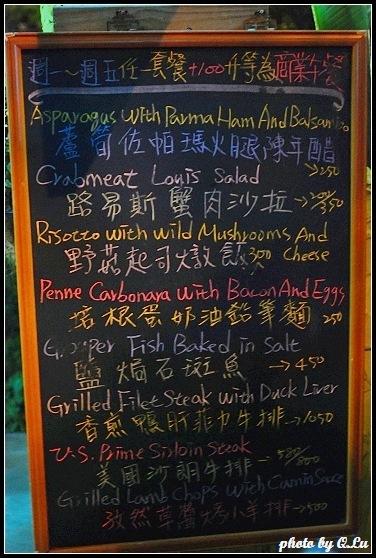 週一~週五任一套餐+100升等為商業午餐
Asparagus with Parma Ham And Balsamico
蘆筍佐帕瑪火腿陳年醋
Crabmeat Louis Salad →250
路易斯蟹肉沙拉
Risotto with Wild Mushrooms And
野菇起司燉飯 300 Cheese
Penne Carbonara with Bacon And Eggs
培根蛋奶油鉛筆麵 250
Grouper Fish Baked in Salt
鹽焗石斑魚 →450
Grilled Filet Steak with Duck Liver
香煎鴨肝菲力牛排→1050
U.S. Prime Sirloin Steak
美國沙朗牛排→580/800
Grilled Lamb Chops with Cumin Sauce
孜然草醬烤小羊排→500
photo by Q.Lu